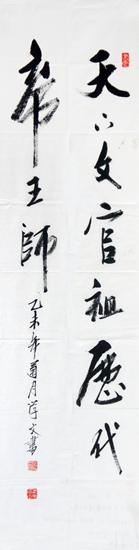 天下文官祖歷代
帝王師
乙未年菊月學文書